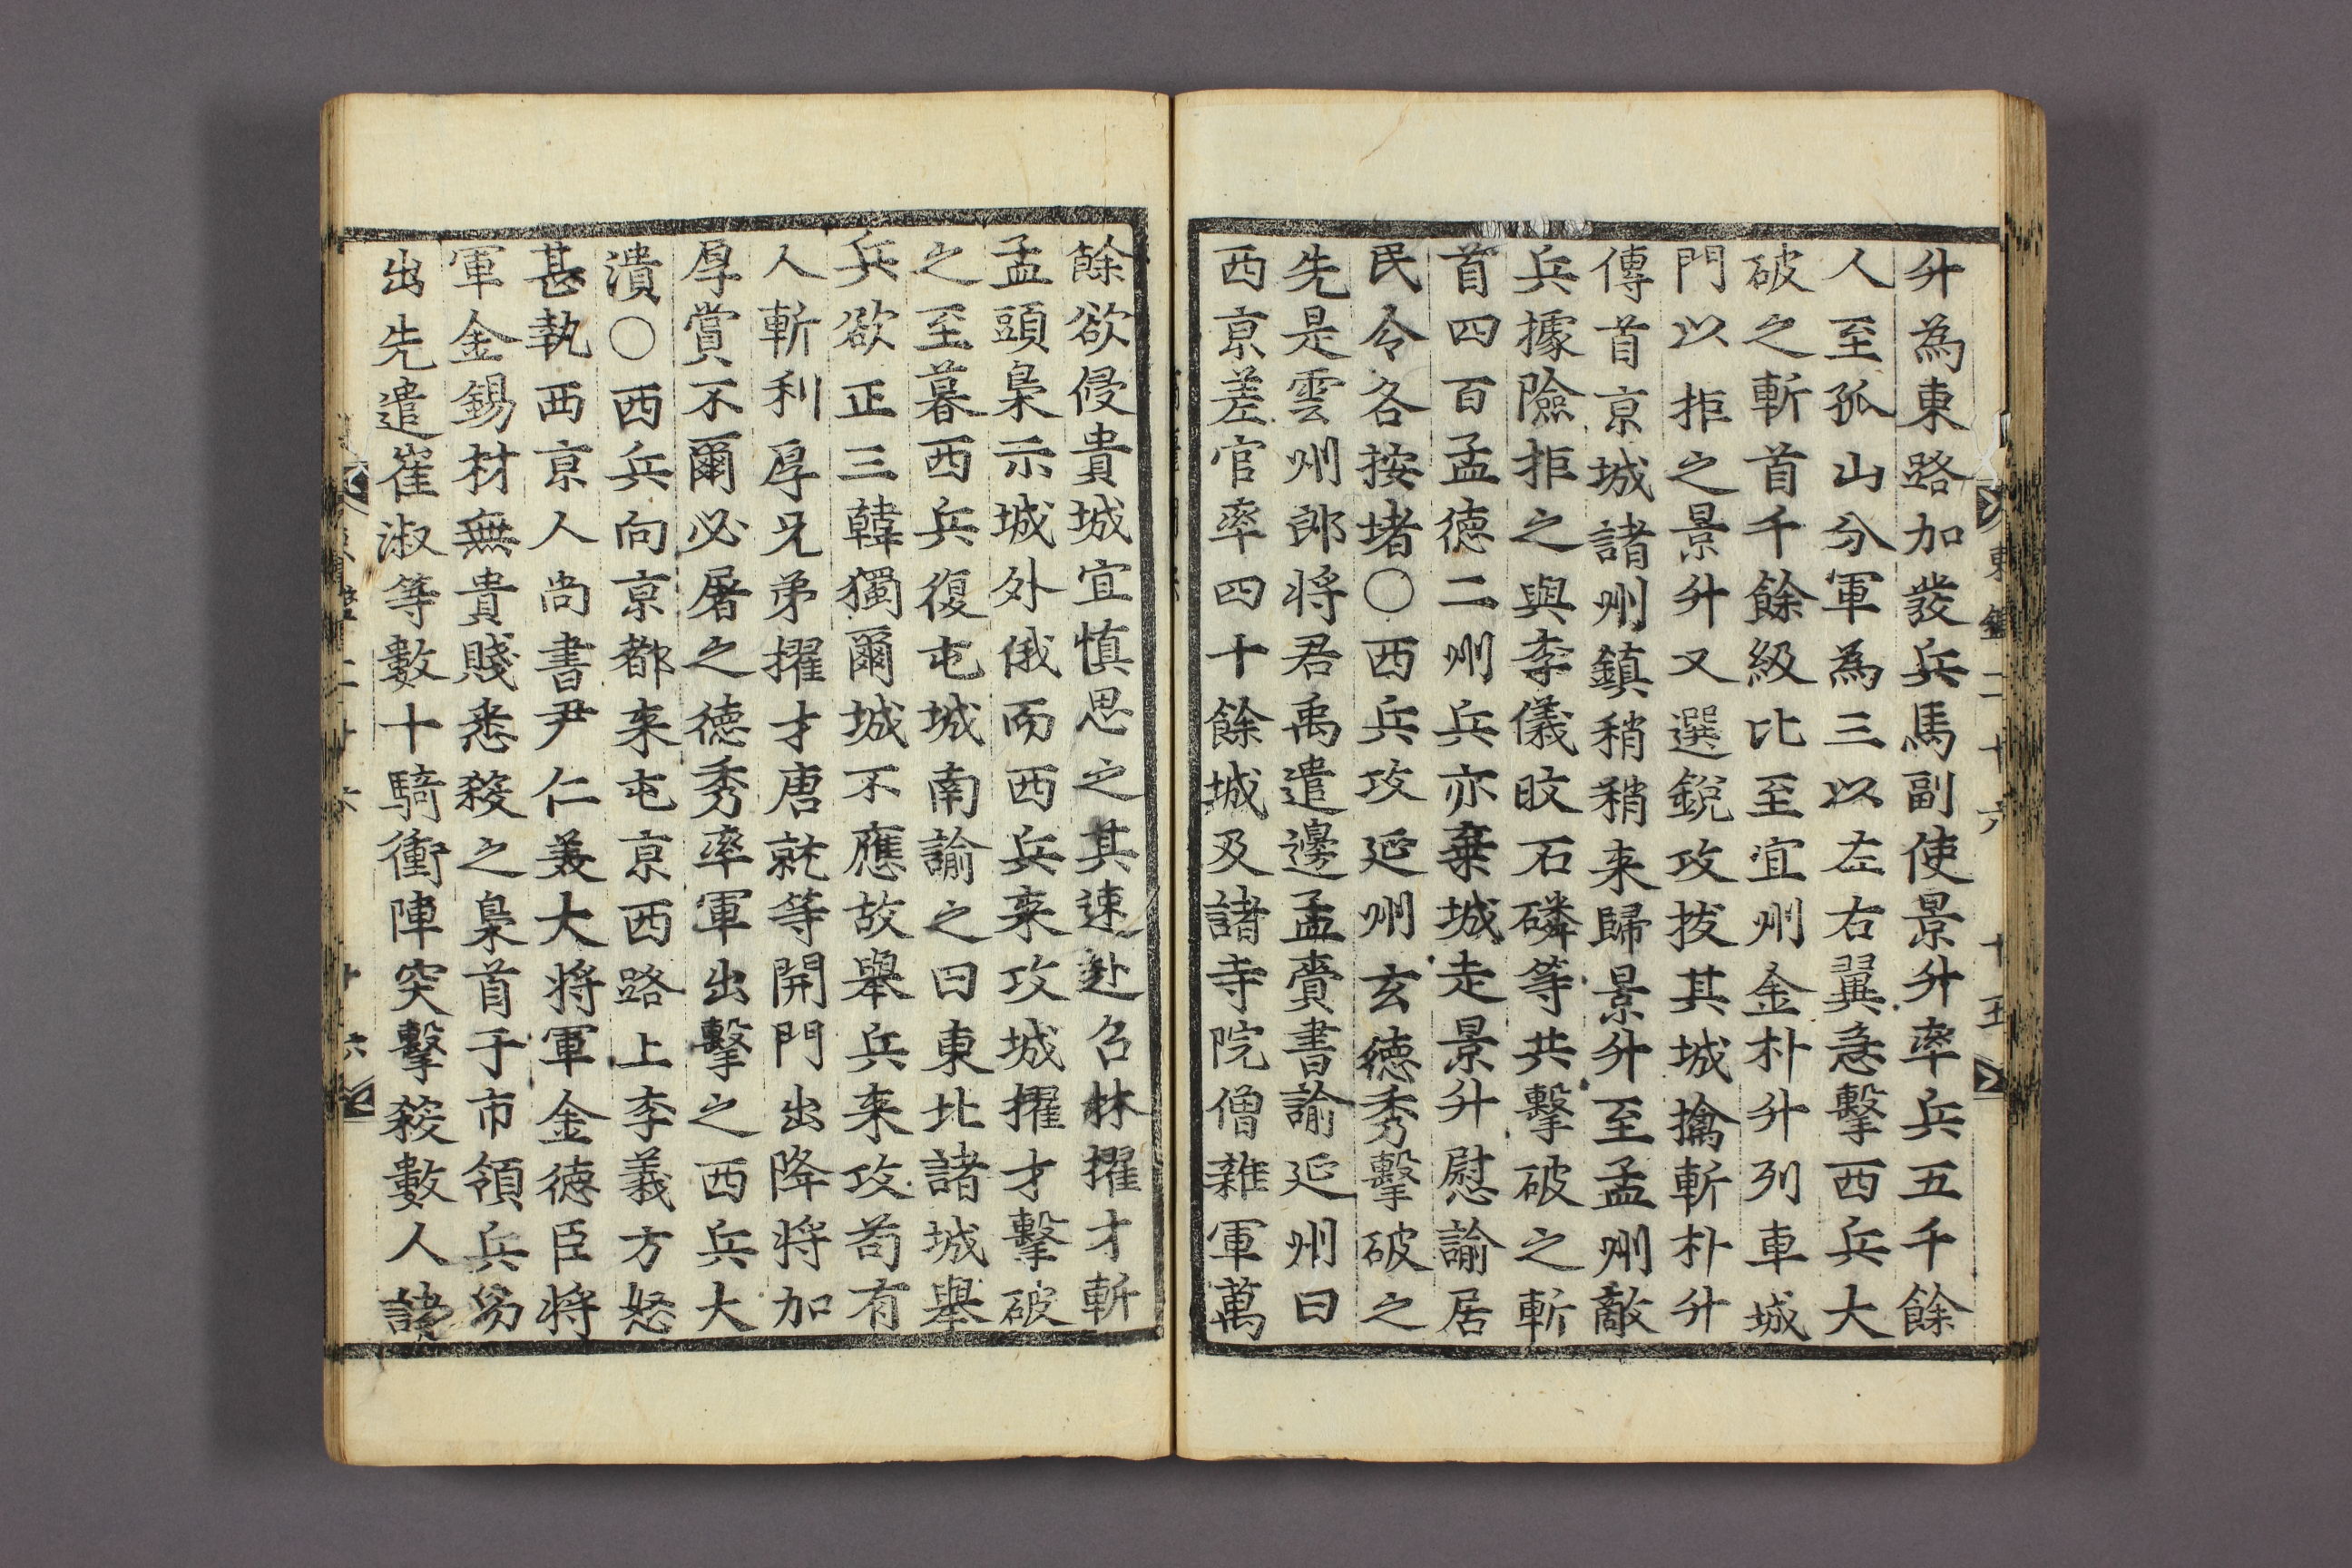 東鑑二十六 十五
升為東路加發兵馬副使景升率兵五千餘
人至孤山分軍為三以左右翼急擊西兵大
破之斬首千餘級比至宜州金朴升列車城
門以拒之景升又選銳攻拔其城擒斬朴升
傳首京城諸州鎮稍稍来歸景升至孟州敵
兵據險拒之與李儀旼石磷等共擊破之斬
首四百孟德二州兵亦棄城走景升慰諭居
民令各按堵○西兵攻延州玄德秀擊破之
先是雲州郎将君禹遣邊孟賫書諭延州曰
西京差官率四十餘城及諸寺院僧雜軍萬
餘欲侵貴城宜慎思之其速赴召林擢才斬
孟頭梟示城外俄而西兵来攻城擢才擊破
之至暮西兵復屯城南諭之曰東北諸城舉
兵欲正三韓獨爾城不應故舉兵来攻苟有
人斬利厚兄弟擢才唐就等開門出降将加
厚賞不爾必屠之德秀率軍出擊之西兵大
潰○西兵向京都来屯京西路上李義方怒
甚執西京人尚書尹仁美大将軍金德臣将
軍金錫材無貴賤悉殺之梟首于市領兵
出先遣崔淑等數十騎衝陣突擊殺數人諸
二十六 十六